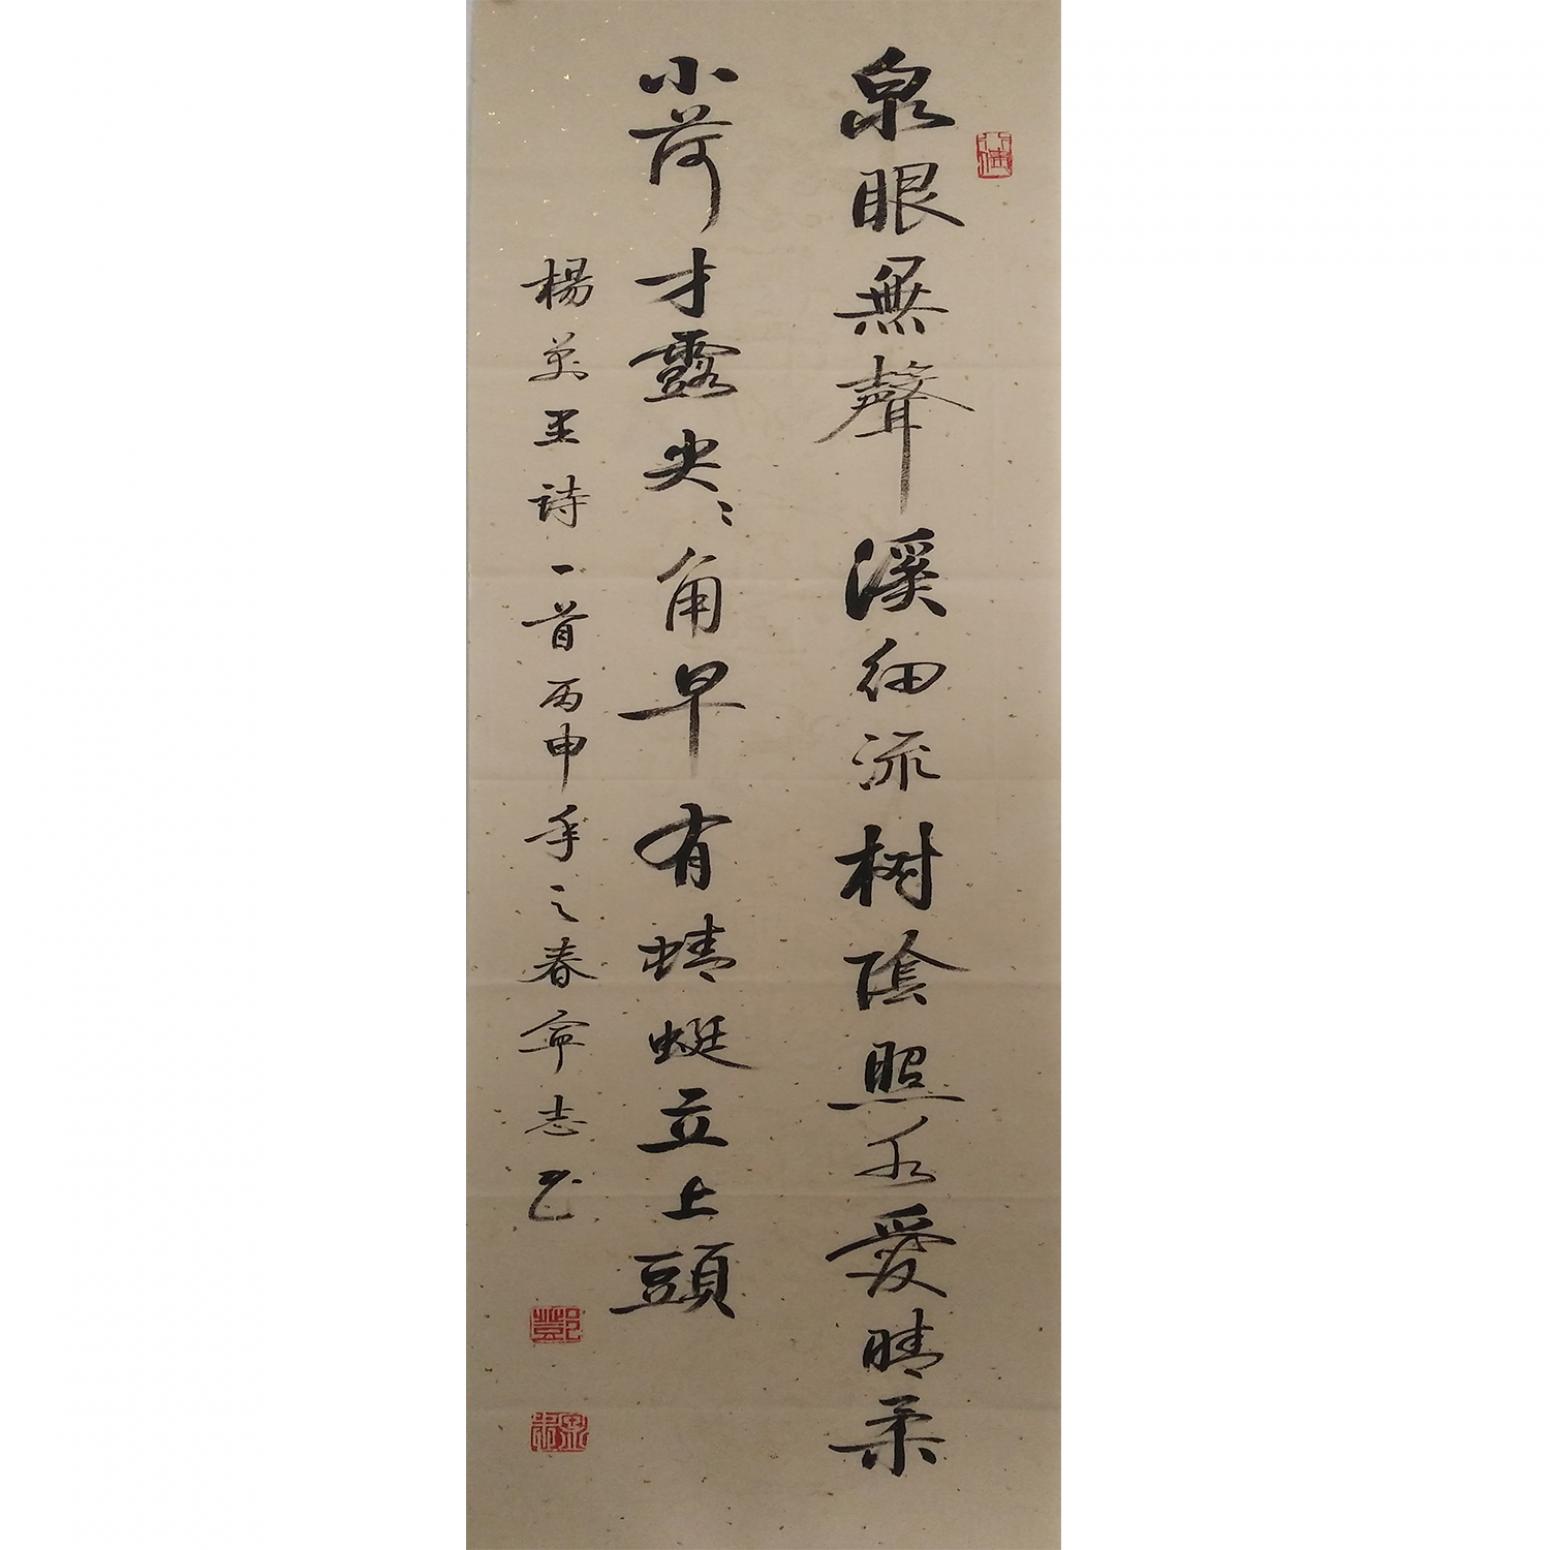 泉眼無聲溪細流树陰照水愛晴柔
小荷才露尖〻角早有蜻蜓立上頭
楊萬里诗一首丙申年之春志